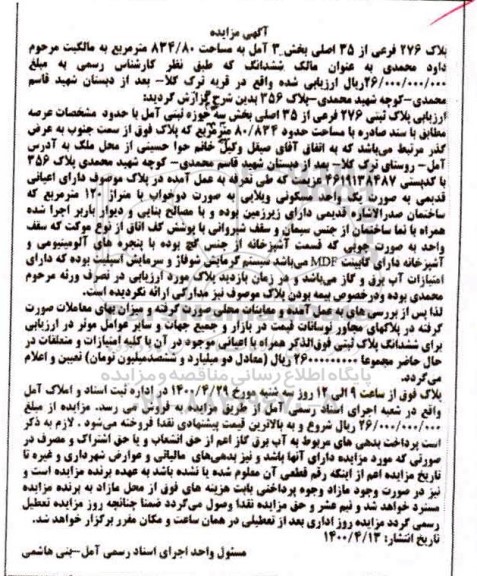 آگهی مزایده
پلاک ۲۷۶ فرعی از ۳۵ اصلی بخش ۳ آمل به مساحت ۸۳۴/۸۰ مترمربع به مالکیت مرحوم
داود محمدی به عنوان مالک ششدانگ که طبق نظر کارشناس رسمی به مبلغ
۲۶/۰۰۰/۰۰۰/۰۰۰ریال ارزیابی شده واقع در قریه ترک کلا- بعد از دبستان شهید قاسم
محمدی-کوچه شهید محمدی-پلاک ۳۵۶ بدین شرح گزارش گردید:
ارزیابی پلاک ثبتی ۲۷۶ فرعی از ۳۵ اصلی بخش سه حوزه ثبتی آمل با حدود مشخصات عرصه
مطابق با سند صادره با مساحت حدود ۸۰/۸۳۴ مترمربع که پلاک فوق از سمت جنوب به عرض
گذر مرتبط می‌باشد که به اتفاق آقای صیقل وکیل خانم حوا حسینی از محل ملک به آدرس
آمل- روستای ترک کلا- بعد از دبستان شهید قاسم محمدی- کوچه شهید محمدی پلاک ۳۵۶
با کدپستی ۴۶۱۹۱۳۸۴۸۷ صورت که طی تعرفه به عمل آمده در پلاک موصوف دارای اعیانی
قدیمی به صورت یک واحد مسکونی ویلایی به صورت دوخواب با متراژ ۱۲۰ مترمربع که
ساختمان صدرالاشاره قدیمی دارای زیرزمین بوده و با مصالح بنایی و دیوار باربر اجرا شده
همراه با نما ساختمان از جنس سیمان و سقف شیروانی با پوشش کف اتاق از نوع موکت که سقف
واحد به صورت چوبی که قسمت آشپزخانه از جنس گچ بوده با پنجره های آلومینیومی و
آشپزخانه دارای کابینت MDF می‌باشد سیستم گرمایش شوفاژ و سرمایش اسپلیت بوده که دارای
امتیازات آب برق و گاز می‌باشد و در زمان بازدید پلاک مورد ارزیابی در تصرف ورثه مرحوم
محمدی بوده ودرخصوص بیمه بودن پلاک موصوف نیز مدارکی ارائه نکردیده است.
لذا پس از بررسی های به عمل آمده و معاینات محلی صورت گرفته و میزان بهای معاملات صورت
گرفته در پلاکهای مجاور نوسانات قیمت در بازار و جمیع جهات و سایر عوامل موثر در ارزیابی
برای ششدانگ پلاک ثبتی فوق‌الذکر همراه با اعیانی موجود در آن با کلیه امتیازات و متعلقات در
حال حاضر مجموعا ۲۶۰۰۰۰۰۰۰۰۰ ریال (معادل دو میلیارد و ششصدمیلیون تومان) تعیین و اعلام
می‌گردد.
پلاک فوق از ساعت ۹ الی ۱۲ روز سه شنبه مورخ ۱۴۰۰/۴/۲۹ در اداره ثبت اسناد و املاک آمل
واقع در شعبه اجرای اسناد رسمی آمل از طریق مزایده به فروش می رسد. مزایده از مبلغ
۲۶/۰۰۰/۰۰۰/۰۰۰ ریال شروع و به بالاترین قیمت پیشنهادی نقدا فروخته می‌شود . لازم به ذکر
است پرداخت بدهی های مربوط به آب برق گاز اعم از حق انشعاب و یا حق اشتراک و مصرف در
صورتی که مورد مزایده دارای آنها باشد و نیز بدهی‌های مالیاتی و عوارض شهرداری و غیره تا
تاریخ مزایده اعم از اینکه رقم قطعی آن معلوم شده یا نشده باشد به عهده برنده مزایده است و
نیز در صورت وجود مازاد وجوه پرداختی بابت هزینه های فوق از محل مازاد به برنده مزایده
مسترد خواهد شد و نیم عشر و حق مزایده نقدا وصول می‌گردد ضمنا چنانچه روز مزایده تعطیل
رسمی گردد مزایده روز اداری بعد از تعطیلی در همان ساعت و مکان مقرر برگزار خواهد شد.
تاریخ انتشار: ۱۴۰۰/۴/۱۳
مسئول واحد اجرای اسناد رسمی آمل-بنی هاشمی
پایگاه اطلاع رسانی مناقصه و مزایده